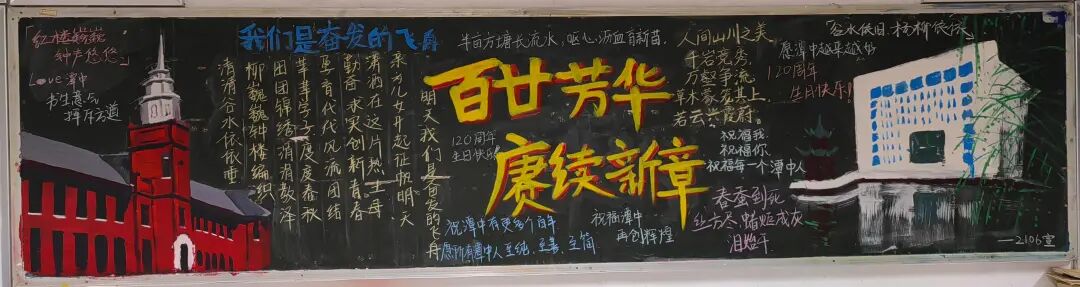 红楼巍巍
钟声悠悠
Love 潭中
书生意气
挥斥方遒
我们是奋发的飞舟
清清谷水依依垂
柳巍巍钟楼编织
团团锦绣涓涓教泽
莘莘学子度度春秋
育代代风流团结
勤奋求实创新青春
潇洒在这片热土母
亲为儿女升起征帆明天
明天我们是奋发的飞舟
120周年
生日快乐
半亩方塘长流水，呕心沥血育新苗。
百廿芳华
赓续新章
祝潭中有更多个百年
愿所有潭中人至纯、至善、至简
祝福潭中
再创辉煌
人间山川之美
千岩竞秀，
万壑争流，
草木蒙笼其上，
若云兴霞蔚。
谷水依旧，杨柳依依
愿潭中越来越好
120周年
生日快乐！
祝福我
祝福你
祝福每一个潭中人
春蚕到死
丝方尽，蜡炬成灰
泪始干
—2106宣